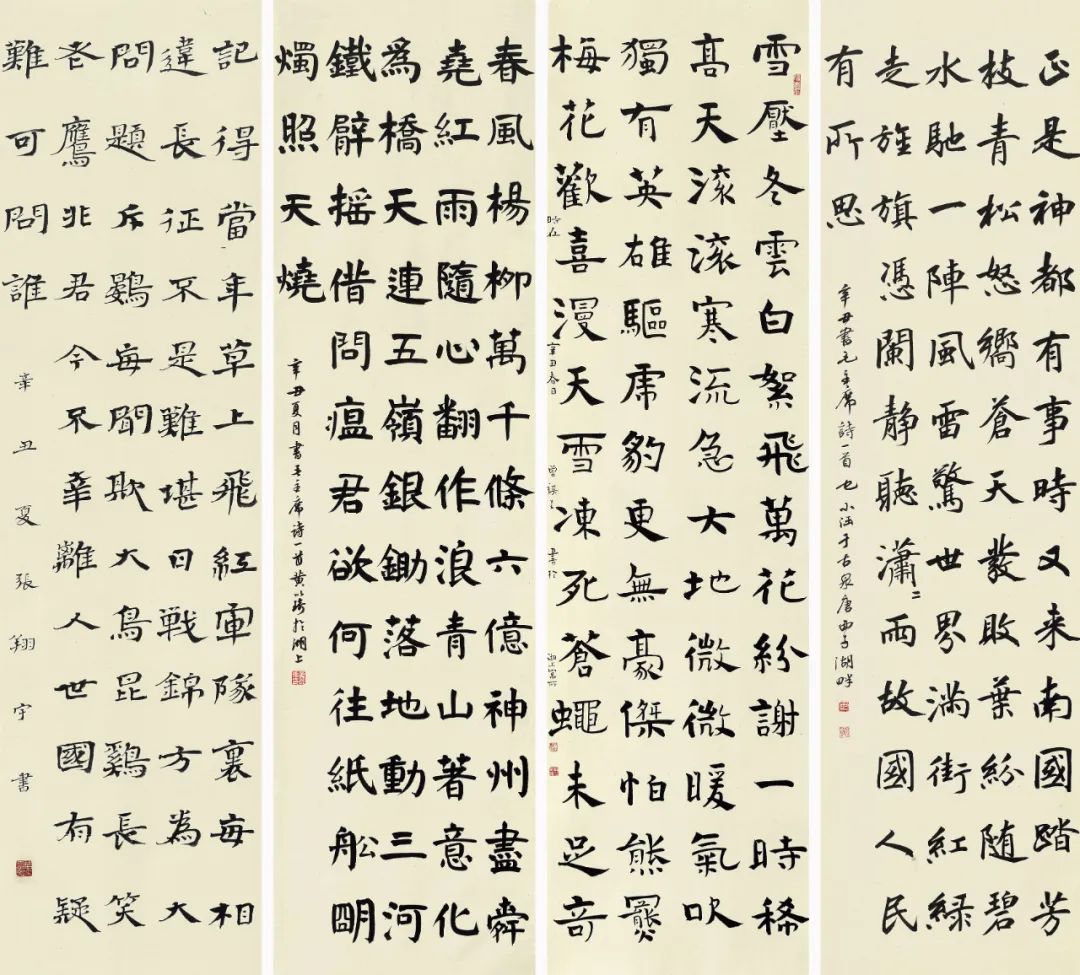 正是神都有事時又来南國踏芳
枝青松怒嚮蒼天發敗葉紛随碧
水馳一陣風雷驚世界滿街紅緑
走旌旗憑闌静聽瀟〻雨故國人民
有所思
辛丑書毛主席詩一首也 小涵于古泉唐西子湖畔
雪壓冬雲白絮飛萬花紛謝一時稀
高天滚滚寒流急大地微微暖氣吹
獨有英雄驅虎豹更無豪傑怕熊羆
梅花歡喜漫天雪凍死蒼蠅未足奇
時在辛丑春日書於
春風楊柳萬千條六億神州盡舜
堯紅雨隨心翻作浪青山著意化
爲橋天連五嶺銀鋤落地動三河
鐵臂摇借問瘟君欲何往紙船明
燭照天燒
辛丑夏月書毛主席诗一首黄於湖上
記得當年草上飛紅軍隊裏每相
違長征不是難堪日戰錦方為大
問題斥鷃每聞欺大鳥昆鷄長笑
老鷹非君今不幸離人世國有疑
難可問誰
辛丑夏張翔宇書